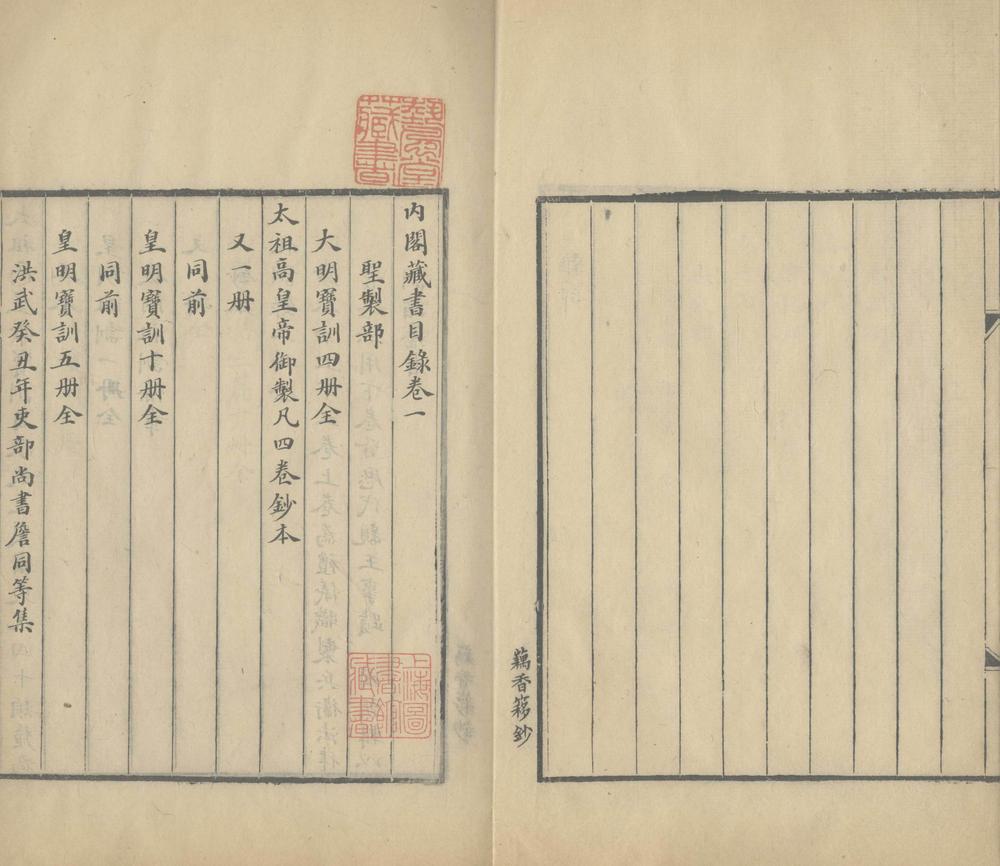 藕香簃鈔
内閣藏書目錄卷一
聖製部
大明寶訓四册全
太祖高皇帝御製凡四卷鈔本
又一册
同前
皇明寶訓十册全
同前
皇明寶訓五册全
洪武癸丑年吏部尚書詹同等集
上海圖書館藏書